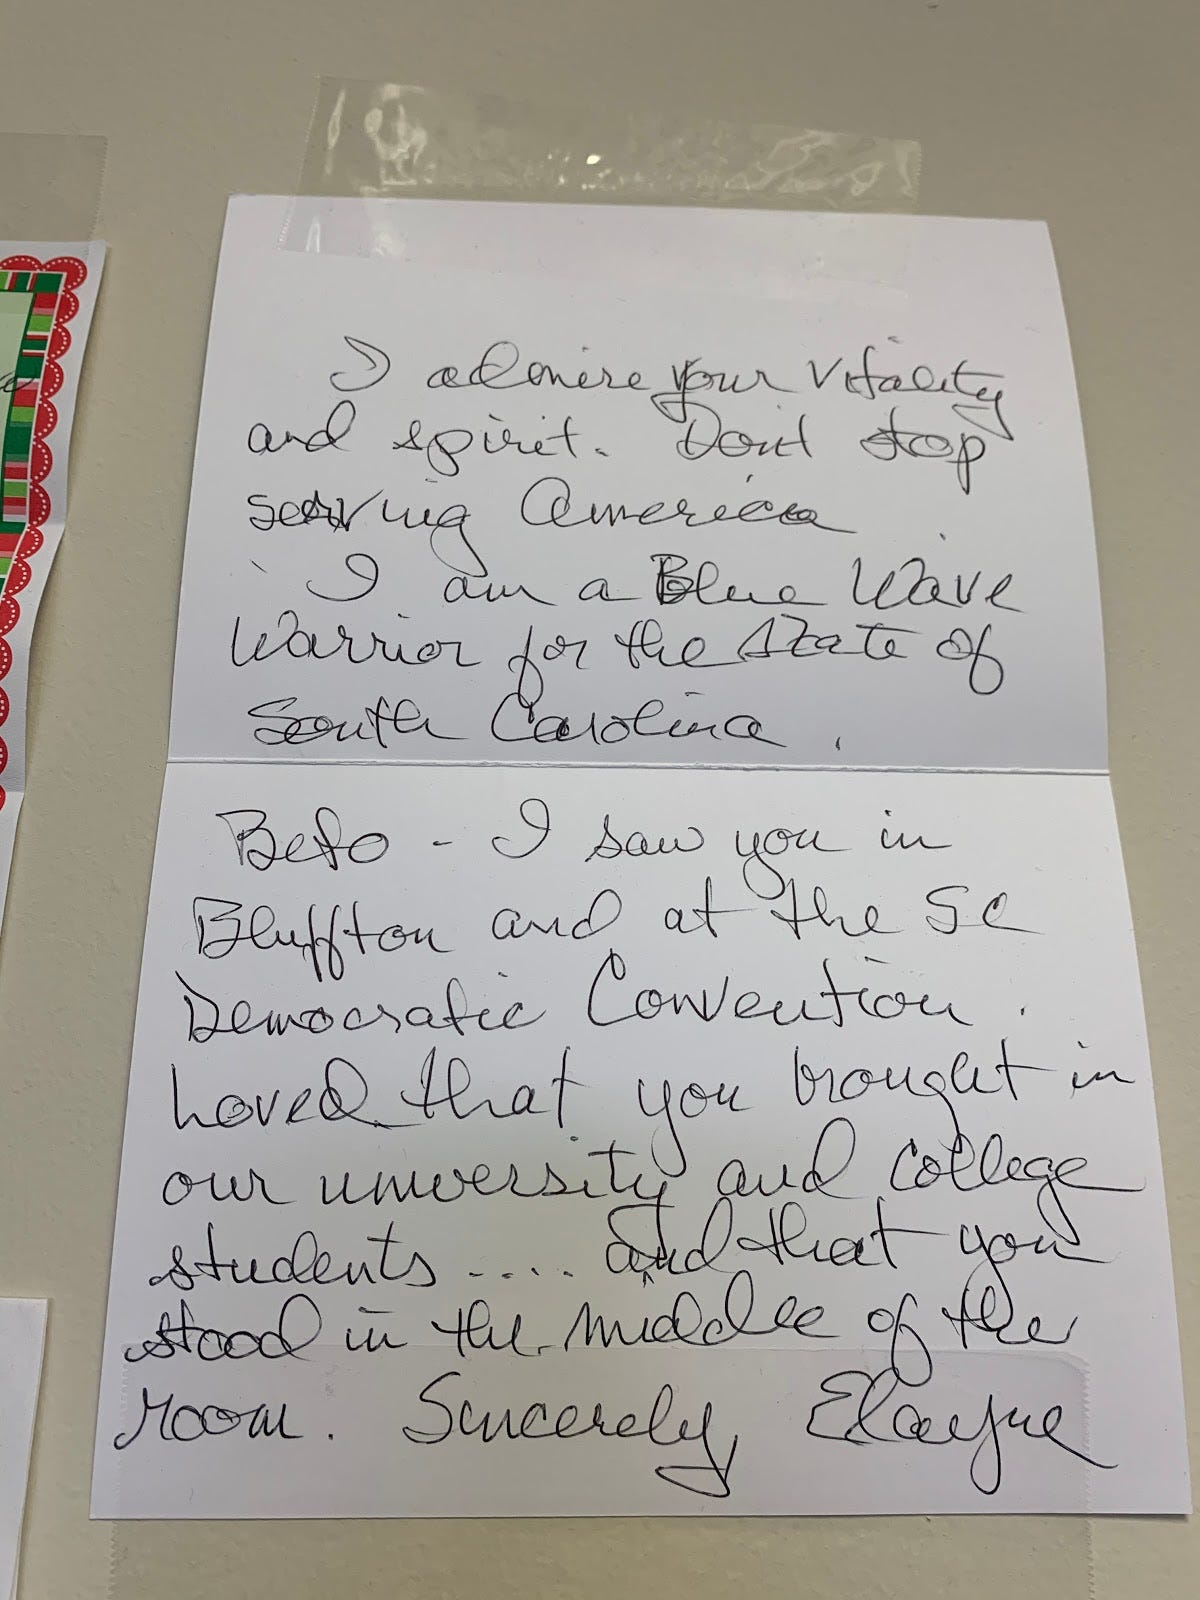 I admire your vitality
and spirit. Dont stop
serving America
I am a Blue Wave
Warrior for the State of
South Carolina.
Beto - I saw you in
Bluffton and at the SC
Democratic Convention.
Loved that you brought in
our university and college
students.... and that you
stood in the middle of the
room. Sincerely, Elayne